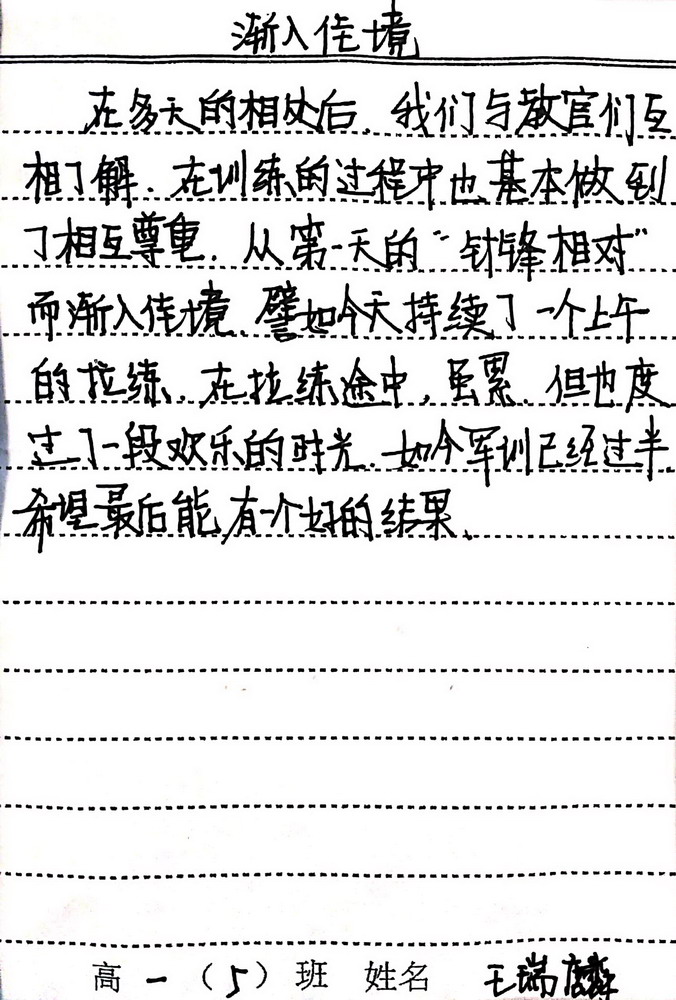 渐入佳境
在多天的相处后，我们与教官们互
相了解．在训练的过程中也基本做到
了相互尊重．从第一天的“针锋相对”
而渐入佳境．譬如今天持续了一个上午
的拉练．在拉练途中，虽累．但也度
过了一段欢乐的时光．如今军训已经过半．
希望最后能有一个好的结果．
高一（5）班 姓名 王瑞麟